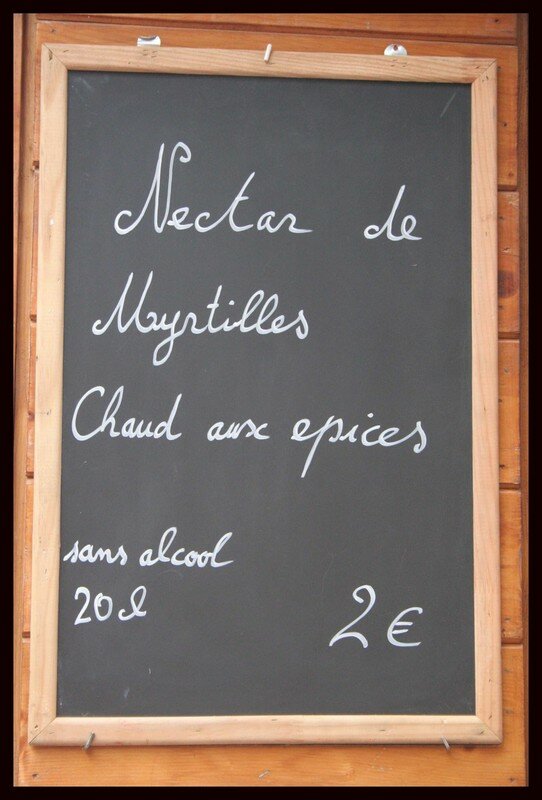 Nectar de
Myrtilles
Chaud aux epices
sans alcool
20 l
2 €